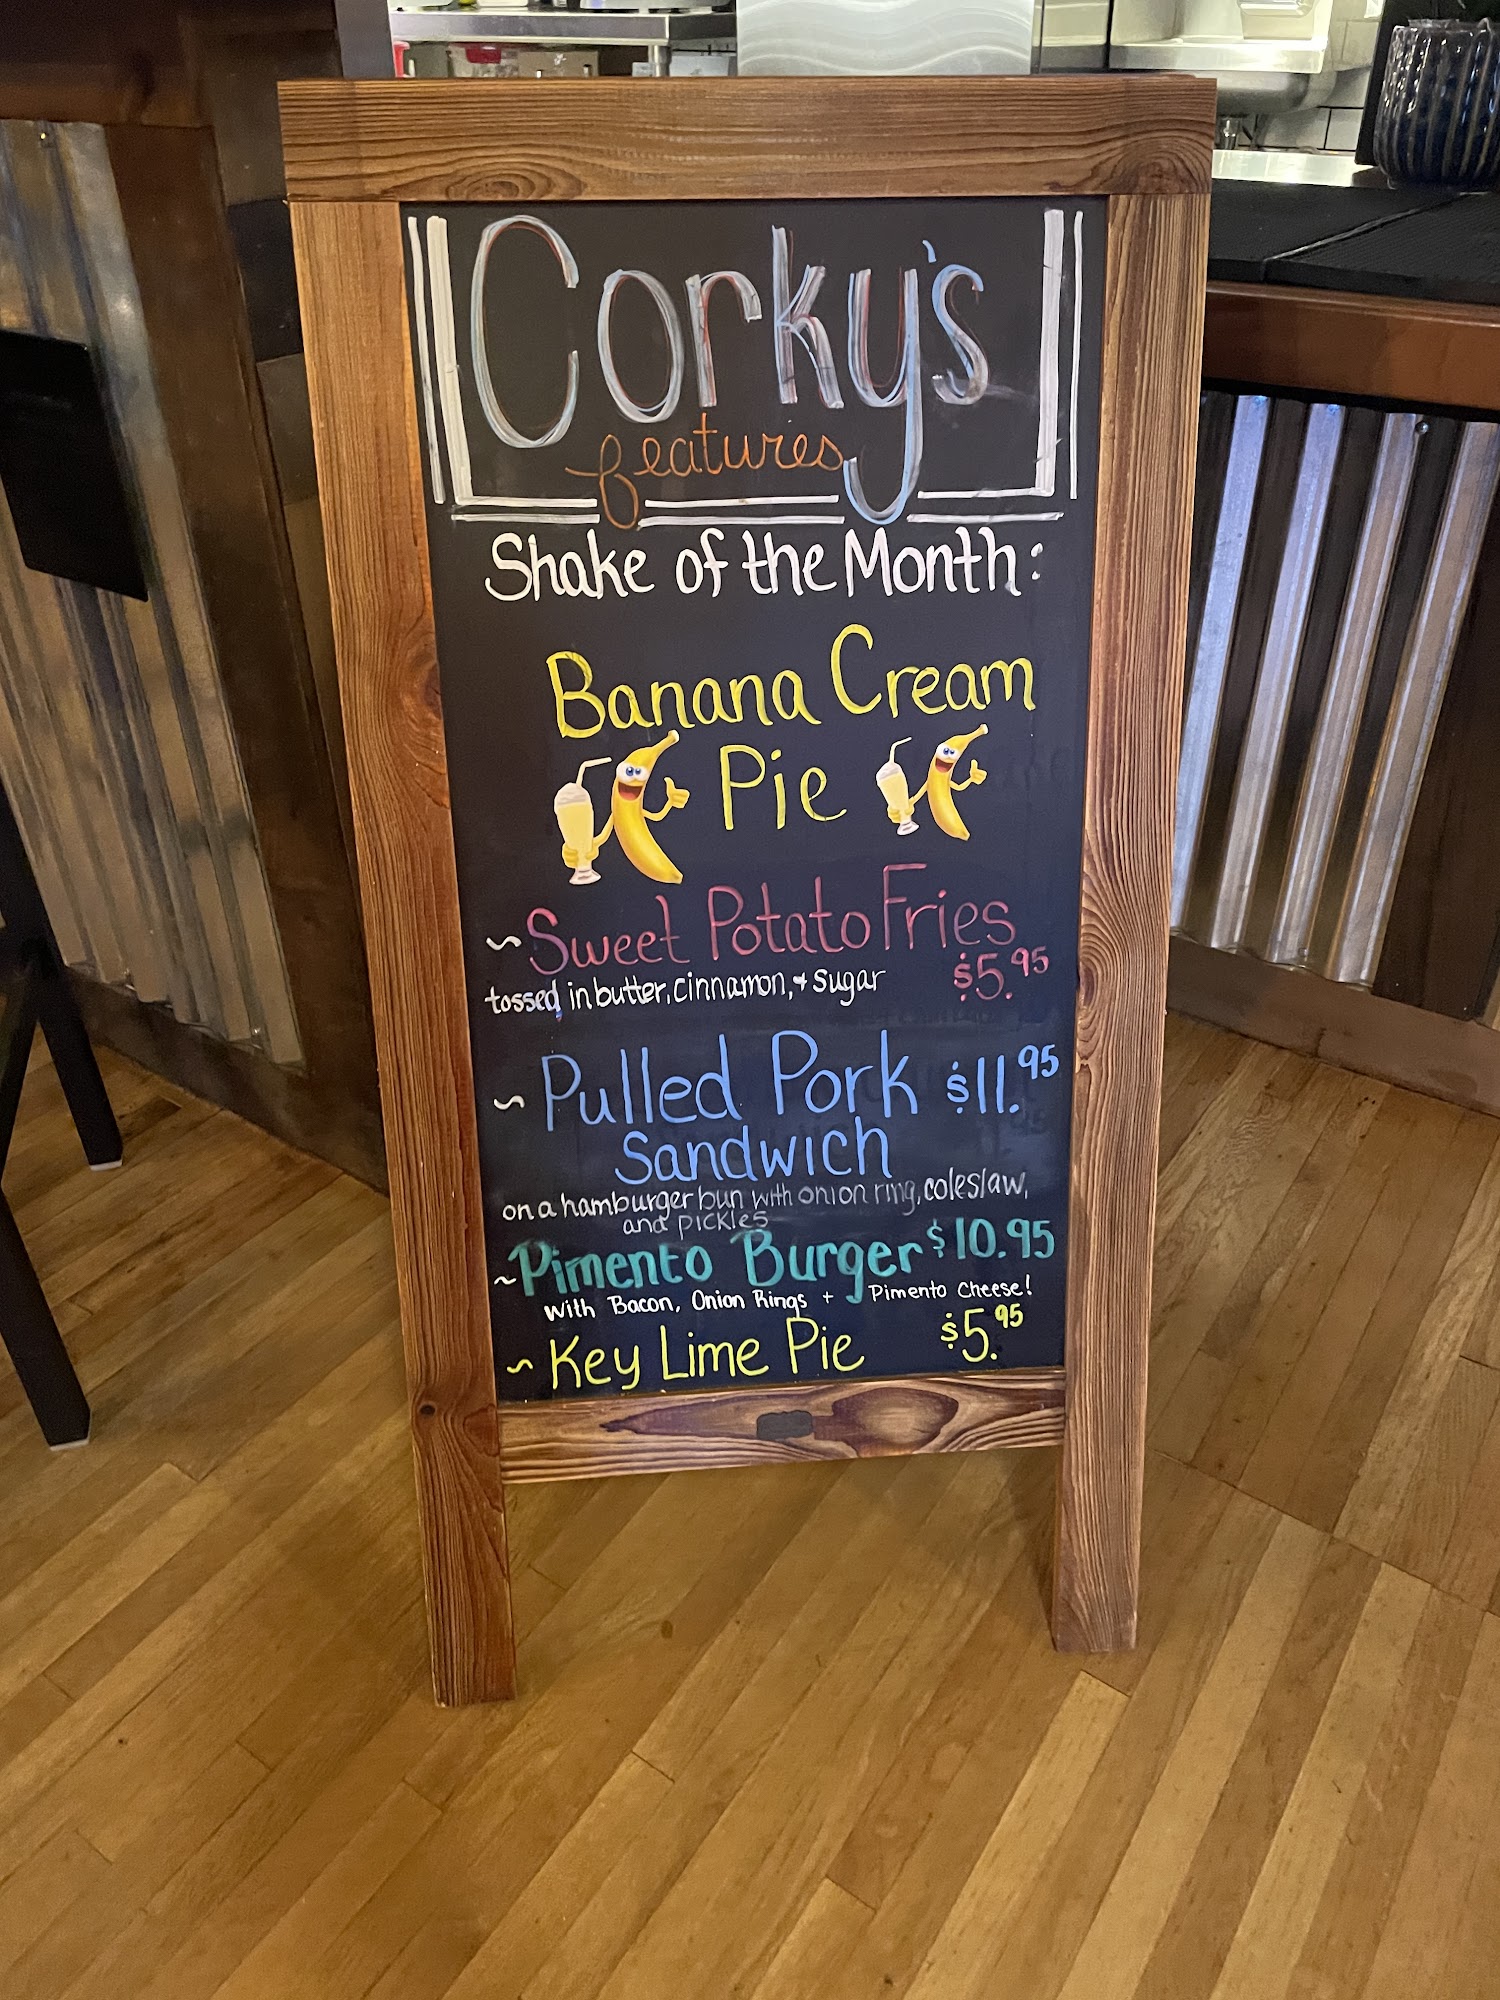 Corky's
features
Shake of the Month:
Banana Cream
Pie
~ Sweet Potato Fries
tossed in butter, cinnamon, + sugar $5.95
~ Pulled Pork $11.95
Sandwich
on a hamburger bun with onion ring, coleslaw,
and pickles
~ Pimento Burger $10.95
with Bacon, Onion Rings + Pimento Cheese!
~ Key Lime Pie $5.95